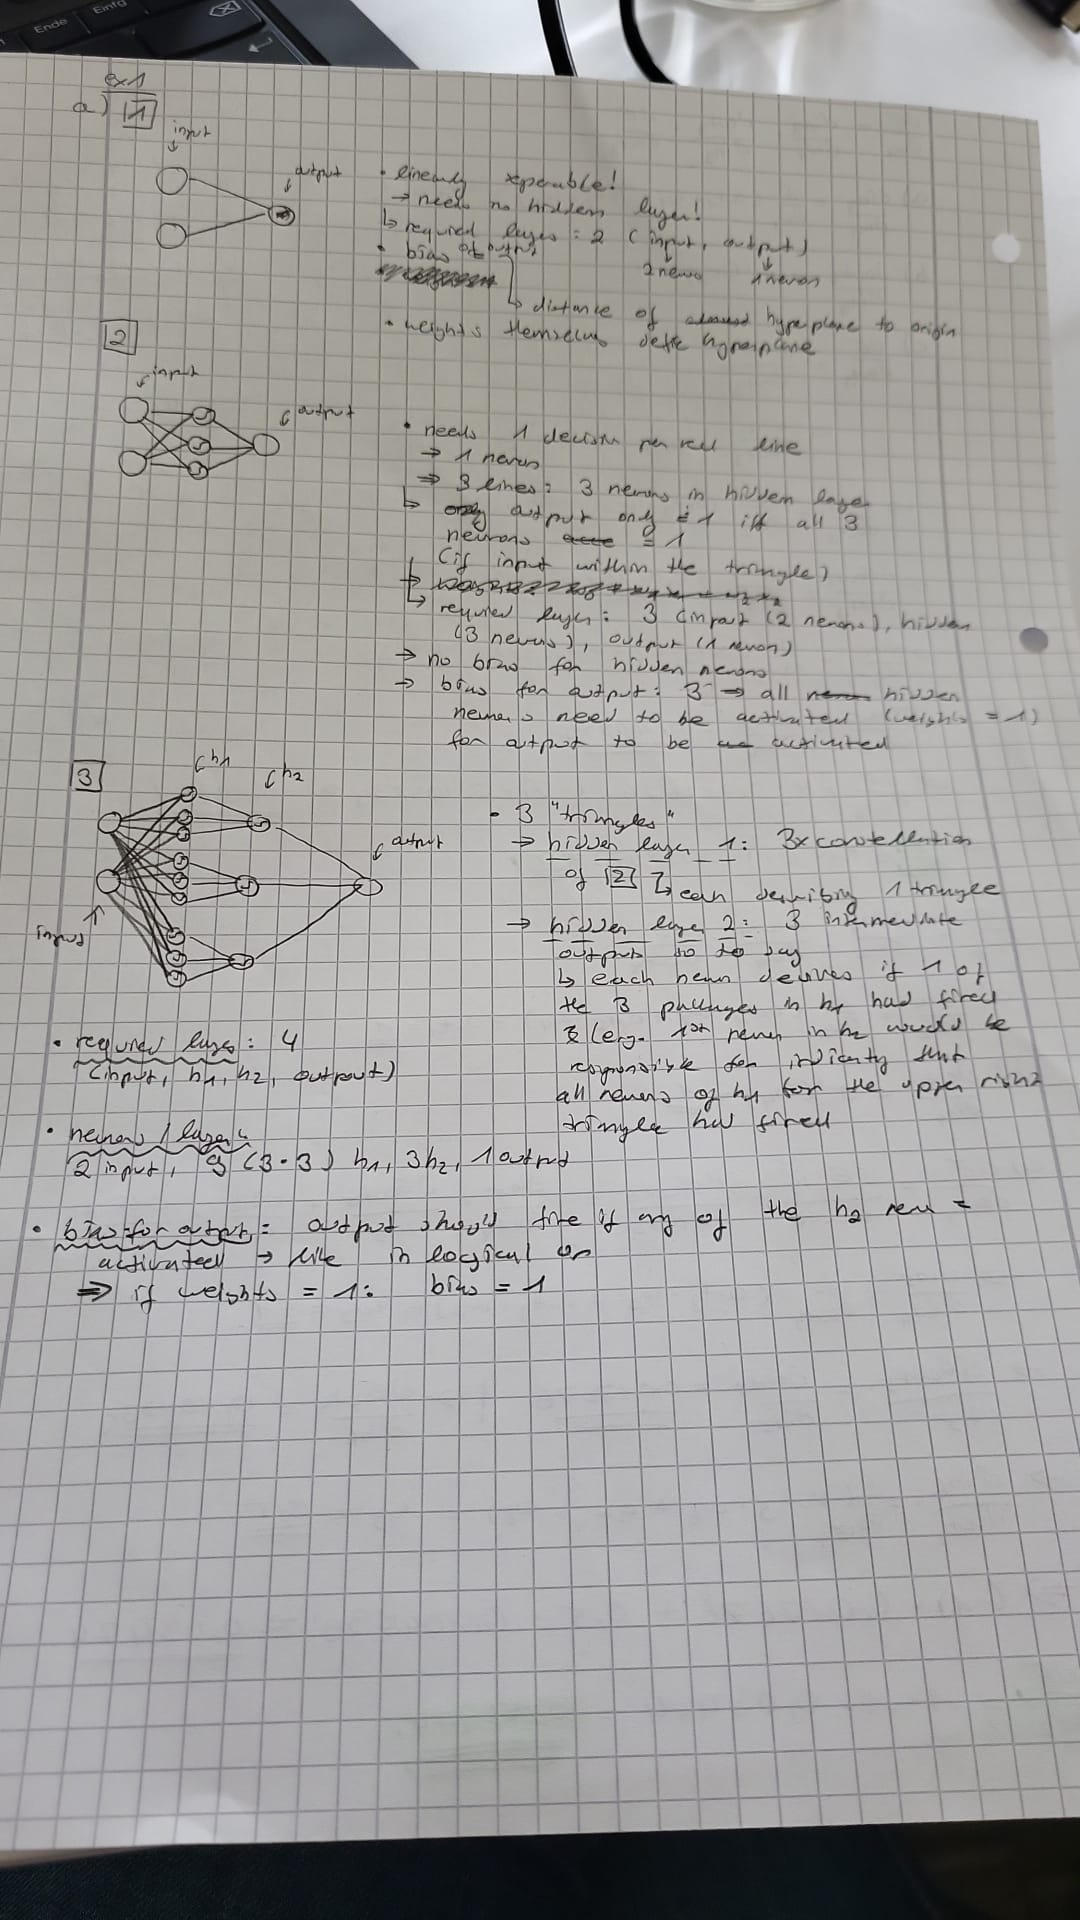 Ende
Einfg
ex1
a) 1
input
output
• linearly seperable!
→ needs no hidden layer!
↳ required layers = 2 (input, output)
2 neurons
1 neuron
• bias of output
↳ distance of hyperplane to origin
• weights themselves define hyperplane
2
input
output
• needs 1 decision per line
→ 1 neuron
⇒ 3 lines: 3 neurons in hidden layer
↳ output only = 1 iff all 3
neurons = 1
(if input within the triangle)
↳ required layers: 3 (input (2 neurons), hidden
(3 neurons), output (1 neuron)
→ no bias for hidden neurons
→ bias for output: 3 → all hidden
neurons need to be activated (weights = 1)
for output to be activated
3
h1
h2
output
input
• 3 "triangles"
→ hidden layer 1: 3x constellation
of 2
↳ each describing 1 triangle
→ hidden layer 2: 3 intermediate
outputs so to say
↳ each neuron decides if 1 of
the 3 packages in h1 had fired
(e.g. 1st neuron in h2 would be
responsible for indicating that
all neurons of h1 for the upper right
triangle had fired
• required layers: 4
(input, h1, h2, output)
• neurons / layer:
2 input, 9 (3·3) h1, 3 h2, 1 output
• bias for output: output should fire if any of the h2 =
activated → like in logical or
⇒ if weights = 1: bias = 1